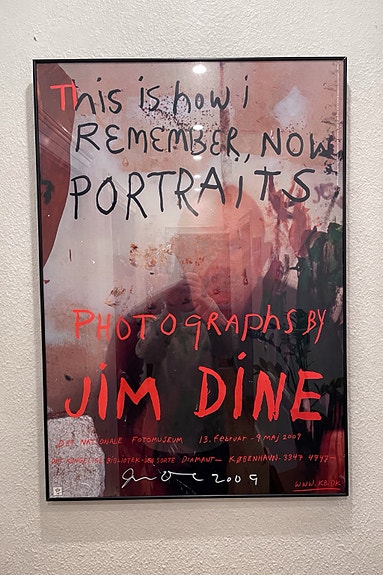 This is how i
REMEMBER, NOW
PORTRAITS
PHOTOGRAPHS BY
JIM DINE
DET NATIONALE FOTOMUSEUM 13. februar - 9 maj 2009
DET KONGELIGE BIBLIOTEK - DEN SORTE DIAMANT - KØBENHAVN - 3347 4747 -
2009
WWW.KB.DK